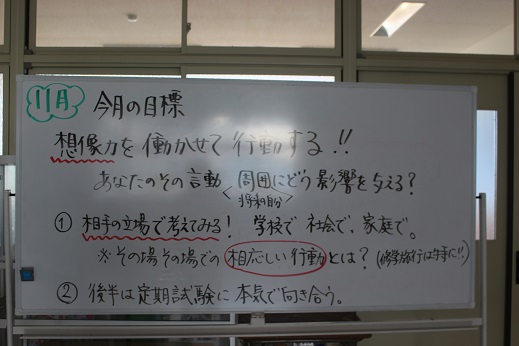 11月 今月の目標
想像力を働かせて行動する!!
あなたのその言動 周囲にどう影響を与える?
<将来自分>
① 相手の立場で考えてみる! 学校で 社会で、家庭で。
※その場その場での 相応しい行動 とは? (修学旅行は上手に!!)
② 後半は定期試験に本気で向き合う。